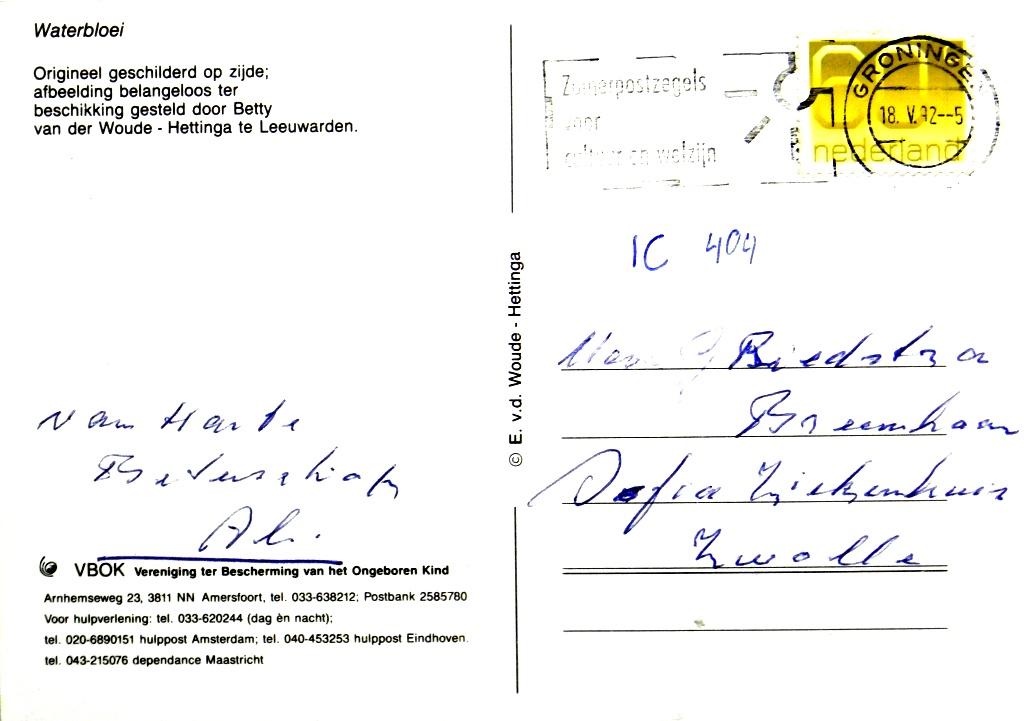 Waterbloei
Origineel geschilderd op zijde;
afbeelding belangeloos ter
beschikking gesteld door Betty
van der Woude - Hettinga te Leeuwarden.
van Harte
Beterschap
VBOK Vereniging ter Bescherming van het Ongeboren Kind
Arnhemseweg 23, 3811 NN Amersfoort, tel. 033-638212; Postbank 2585780
Voor hulpverlening: tel. 033-620244 (dag èn nacht);
tel. 020-6890151 hulppost Amsterdam; tel. 040-453253 hulppost Eindhoven.
tel. 043-215076 dependance Maastricht
© E. v.d. Woude - Hettinga
Zomerpostzegels
voor
cultuur en welzijn
GRONINGEN
18. V. 92--5
nederland
IC 404
Biedstra
Sofia Ziekenhuis
Zwolle